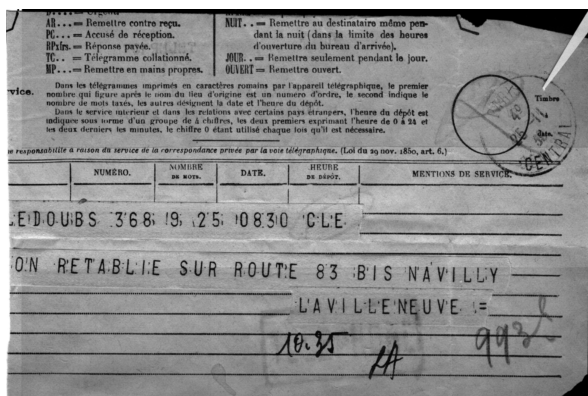 AR... = Remettre contre reçu.
PC... = Accusé de réception.
RPxfrs. = Réponse payée.
TC.. = Télégramme collationné.
MP... = Remettre en mains propres.
NUIT.. = Remettre au destinataire même pen-
dant la nuit (dans la limite des heures
d'ouverture du bureau d'arrivée).
JOUR.. = Remettre seulement pendant le jour.
OUVERT = Remettre ouvert.
Dans les télégrammes imprimés en caractères romains par l'appareil télégraphique, le premier
nombre qui figure après le nom du lieu d'origine est un numéro d'ordre, le second indique le
nombre de mots taxés, les autres désignent la date et l'heure du dépôt.
Dans le service intérieur et dans les relations avec certains pays étrangers, l'heure du dépôt est
indiquée sous forme d'un groupe de 4 chiffres, les deux premiers exprimant l'heure de 0 à 24 et
les deux derniers les minutes, le chiffre 0 étant utilisé chaque fois qu'il est nécessaire.
Timbre
date.
CENTRAL
responsabilité à raison du service de la correspondance privée par la voie télégraphique. (Loi du 29 nov. 1850, art. 6.)
NUMÉRO.
NOMBRE
DE MOTS.
DATE.
HEURE
DE DÉPÔT.
MENTIONS DE SERVICE.
LEDOUBS 368 19 25 0830 CLE
ON RETABLIE SUR ROUTE 83 BIS NAVILLY
LAVILLENEUVE =
10.35
993